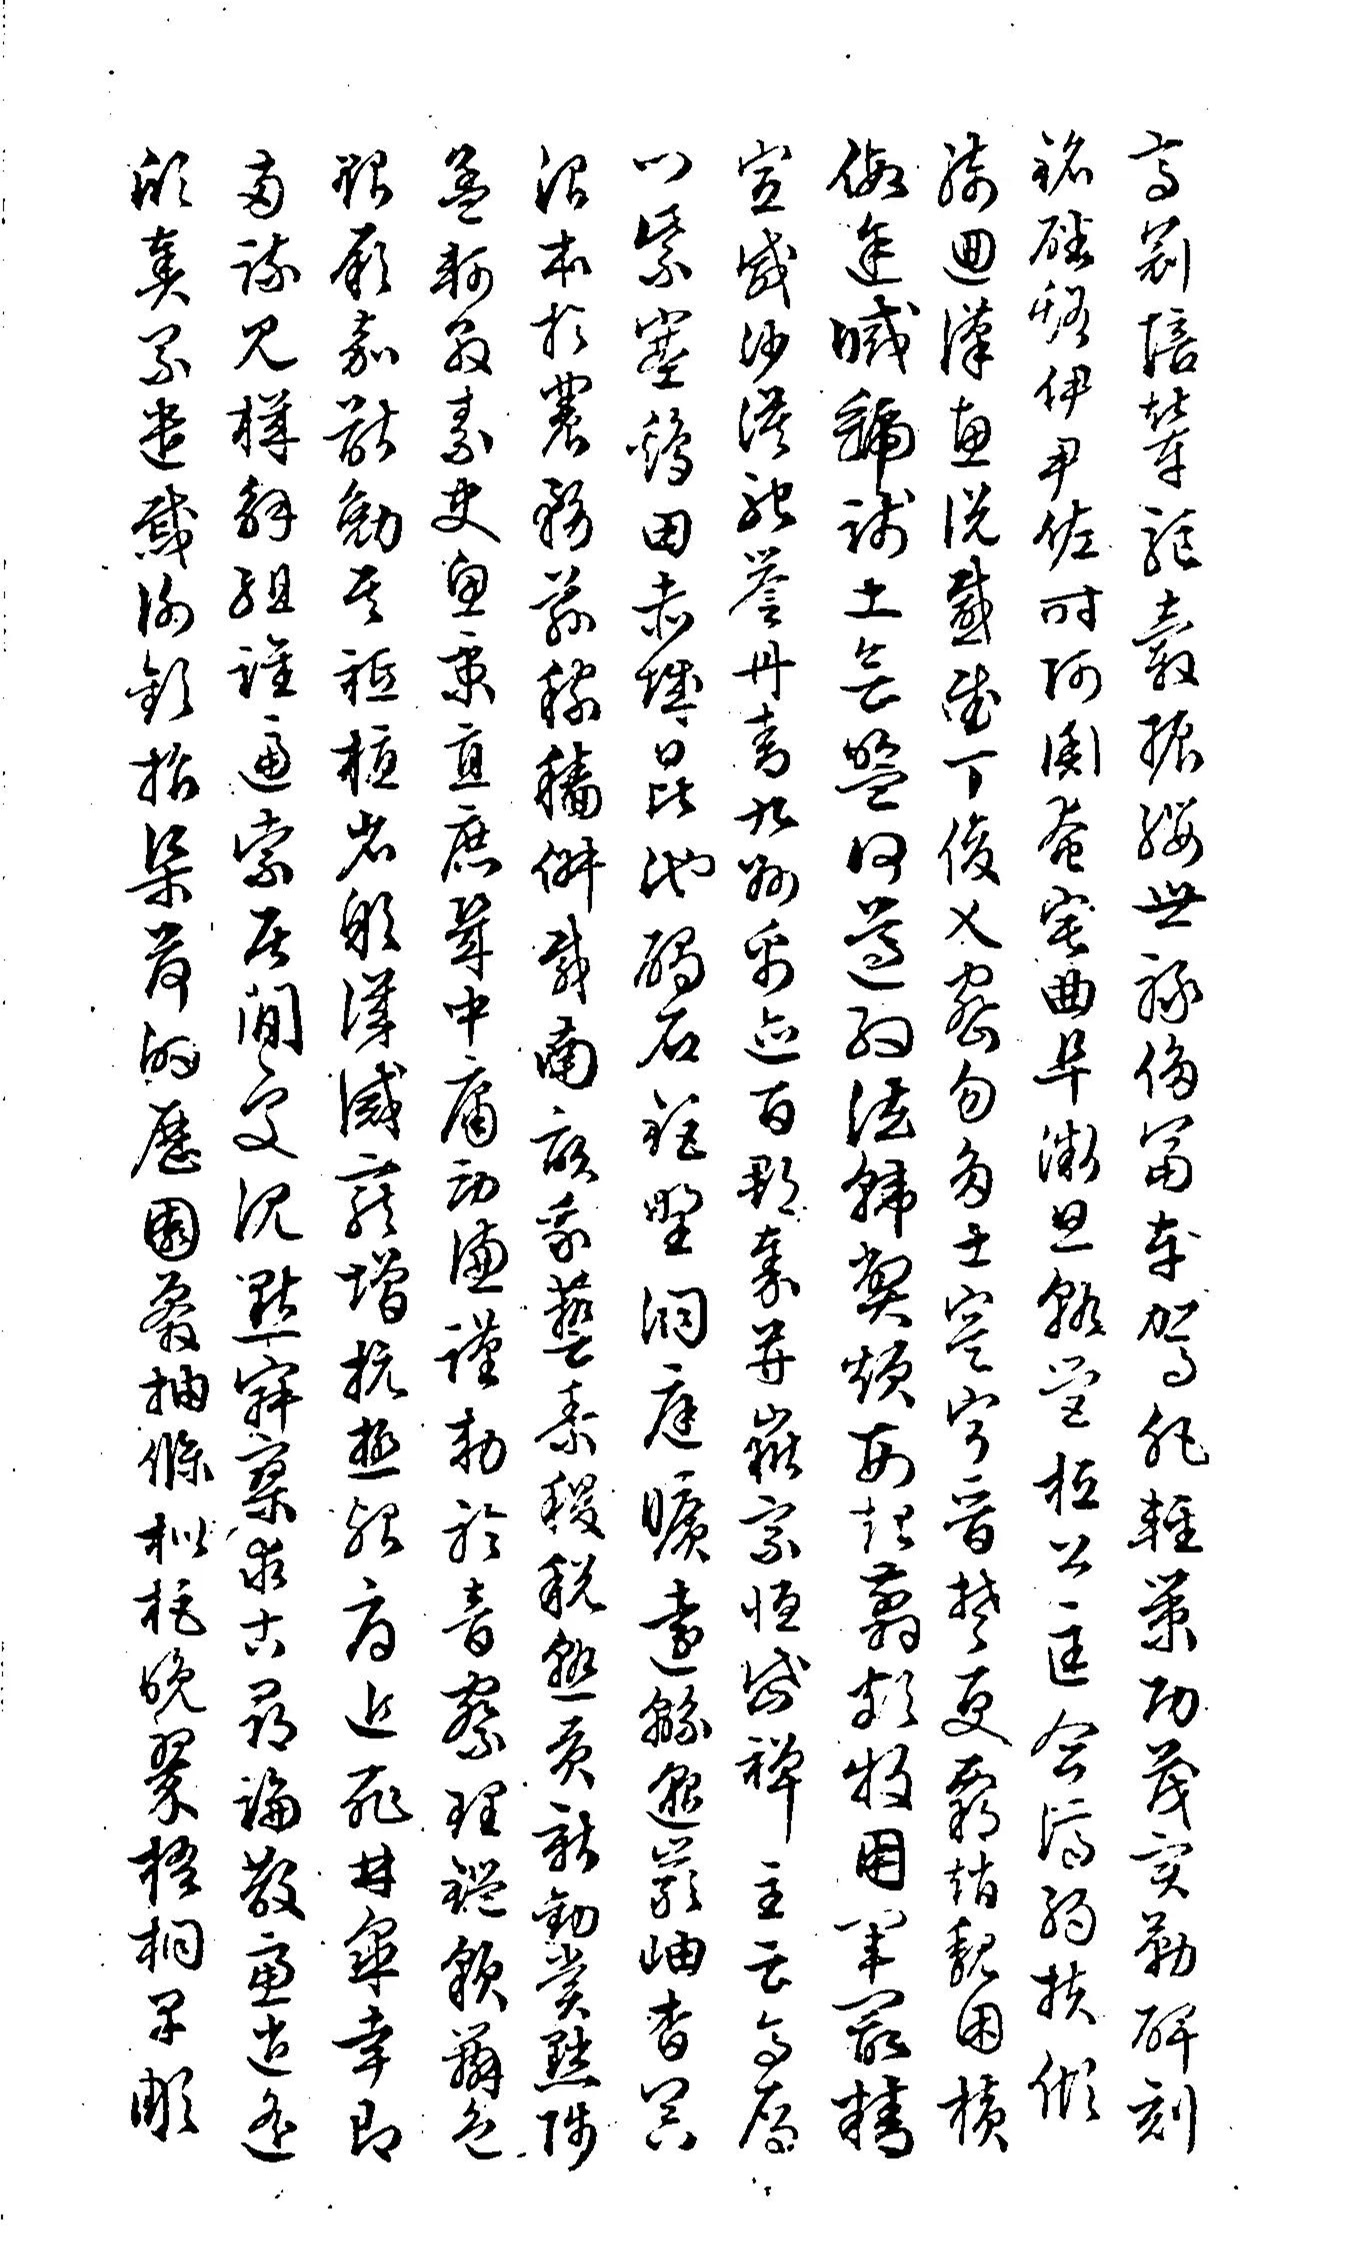 高冠陪輦驅轂振纓世祿侈富車駕肥輕策功茂實勒碑刻
銘磻磎伊尹佐時阿衡奄宅曲阜微旦孰營桓公匡合濟弱扶傾
綺迴漢惠說感武丁俊乂密勿多士寔寧晉楚更霸趙魏困橫
假途滅虢踐土會盟何遵約法韓弊煩刑起翦頗牧用軍最精
宣威沙漠馳譽丹青九州禹跡百郡秦并嶽宗恆岱禪主云亭雁
門紫塞雞田赤城昆池碣石鉅野洞庭曠遠綿邈巖岫杳冥
治本於農務茲稼穡俶載南畝我藝黍稷稅熟貢新勸賞黜陟
孟軻敦素史魚秉直庶幾中庸勞謙謹勅聆音察理鑑貌辨色
貽厥嘉猷勉其祗植省躬譏誡寵增抗極殆辱近恥林皋幸即
兩疏見機解組誰逼索居閒處沉默寂寥求古尋論散慮逍遙
欣奏累遣慼謝歡招渠荷的歷園莽抽條枇杷晚翠梧桐早彫